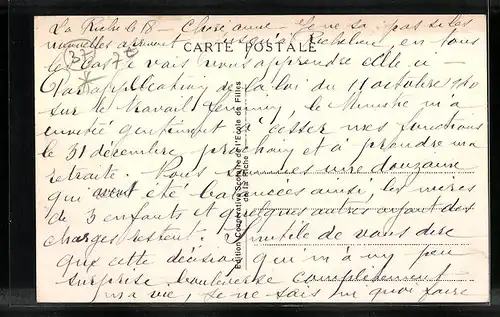 La Riche le 18 – Chère amie – Je ne sai pas si les
nouvelles arrivent jusqu'à Richelieu, en tous
CARTE POSTALE
37
le cas je vais vous apprendre celle-ci –
Par application de la loi du 11 octobre 1940
sur le travail féminin, le Ministre m'a
invitée gentiment à cesser mes fonctions
le 31 décembre prochain et à prendre ma
retraite. Nous sommes une douzaine
qui avons été balancées ainsi, les mères
de 3 enfants et quelques autres ayant des
charges restent. Inutile de vous dire
que cette décision qui m'a un peu
surprise bouleverse complètement
ma vie, je ne sais un quoi faire
Edition Coopérative Scolaire de l'Ecole de Filles
de la Riche